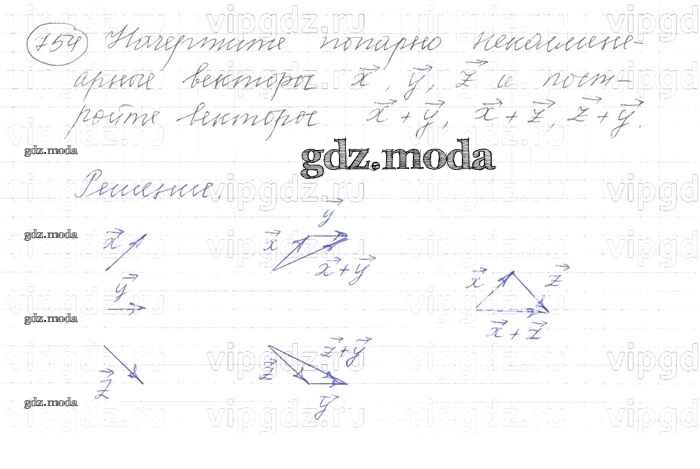 754 Начертите попарно неколлине-
арные векторы x⃗, y⃗, z⃗ и пост-
ройте векторы x⃗ + y⃗, x⃗ + z⃗, z⃗ + y⃗.
gdz.moda
gdz.moda
Решение.
gdz.moda
x⃗
y⃗
x⃗ y⃗ x⃗+y⃗
x⃗ z⃗ x⃗+z⃗
gdz.moda
z⃗
z⃗ z⃗+y⃗ y⃗
gdz.moda
vipgdz.ru